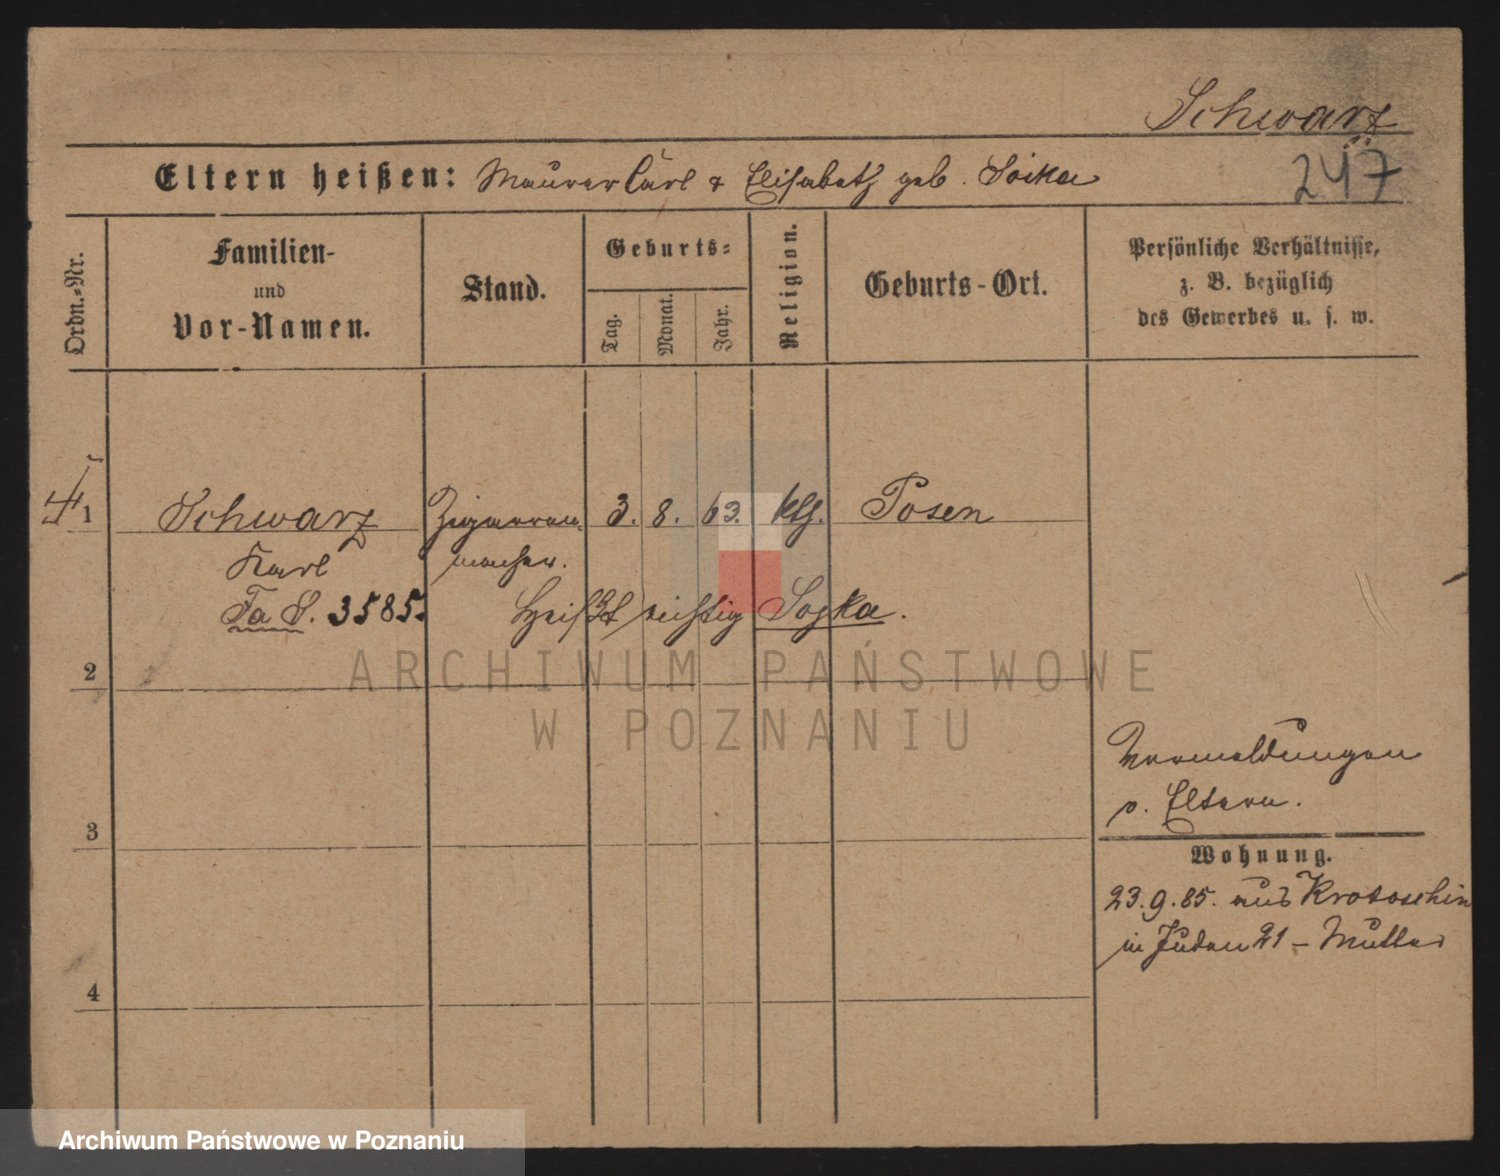 Schwarz
247
Eltern heißen: Maurer Carl & Elisabeth geb. Soika
Ordn.-Nr.
Familien-
und
Vor-Namen.
Stand.
Geburts-
Tag.
Monat.
Jahr.
Religion.
Geburts-Ort.
Persönliche Verhältnisse,
z. B. bezüglich
des Gewerbes u. s. w.
1 Schwarz Zigarren- 3. 8. 63. kth. Posen
Karl macher.
Fa S. 3585. Heißt richtig Soyka.
2
ARCHIWUM PAŃSTWOWE
W POZNANIU
Vermeldungen
v. Eltern.
3
Wohnung.
23.9.85. aus Krotoschin
in Juden 21 – Mutter
4
Archiwum Państwowe w Poznaniu